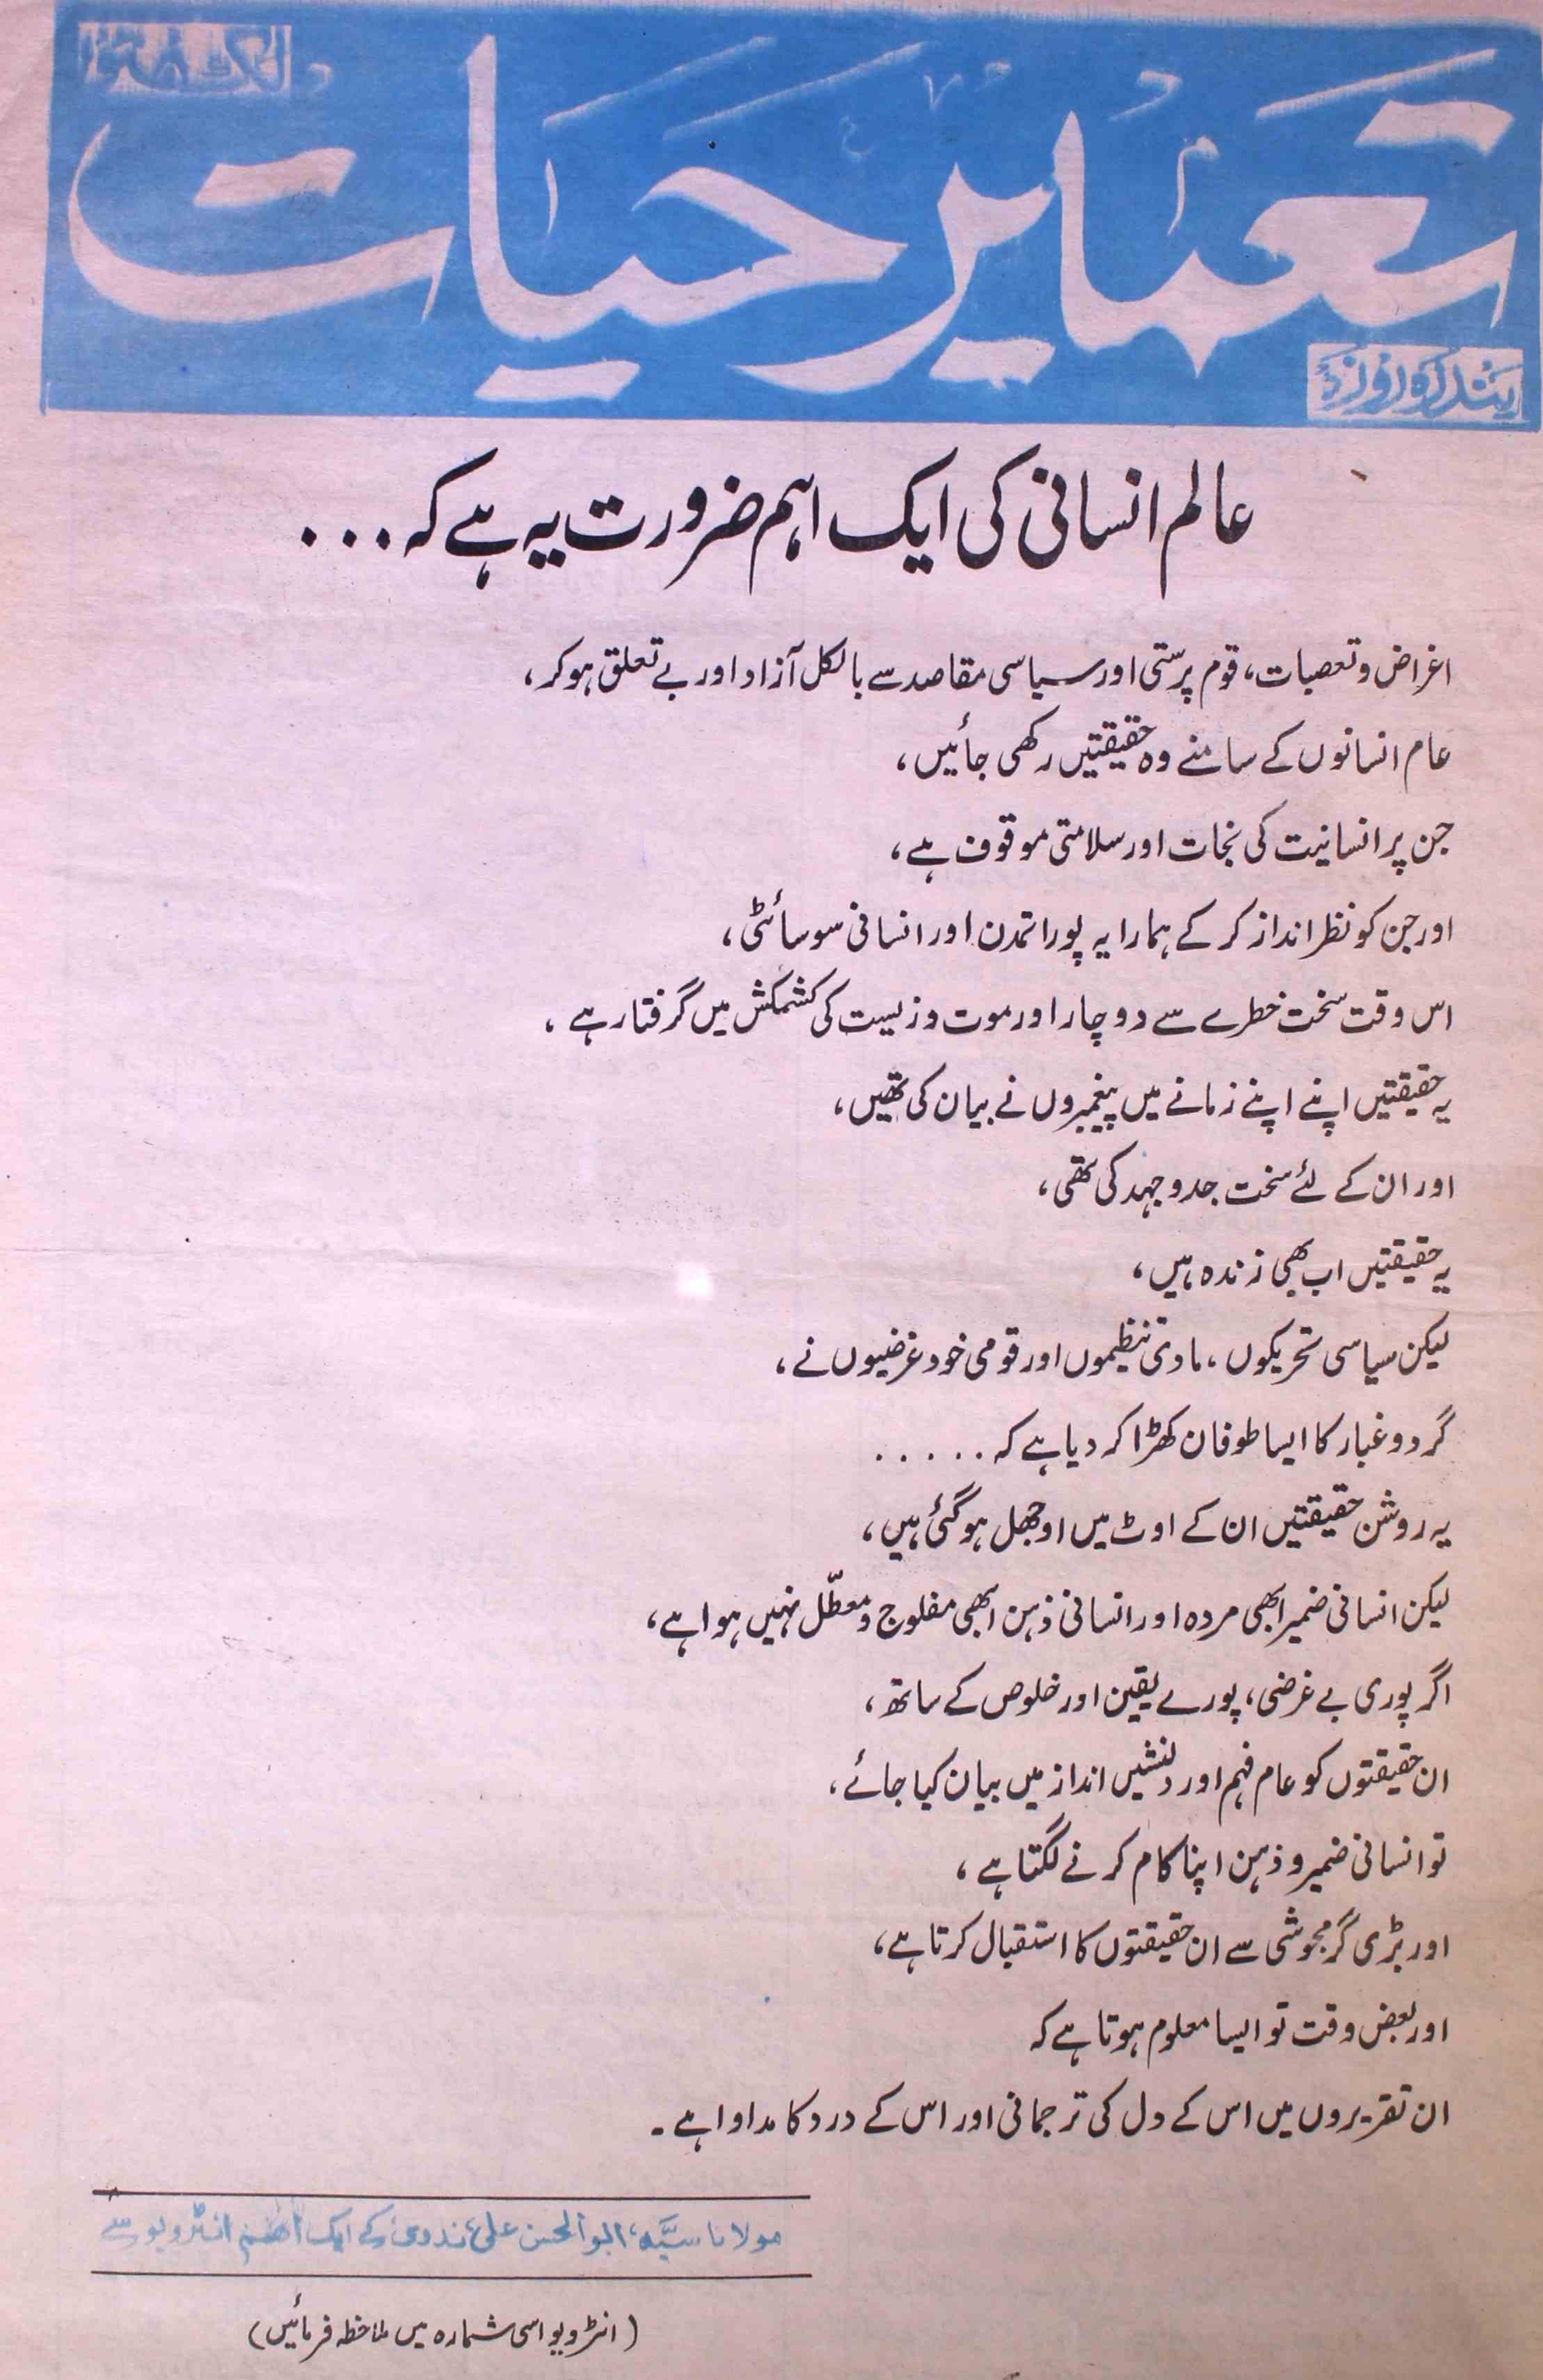 لکھنؤ
تعمیر حیات
پندرہ روزہ
عالم انسانی کی ایک اہم ضرورت یہ ہے کہ ...
اغراض و تعصبات، قوم پرستی اور سیاسی مقاصد سے بالکل آزاد اور بے تعلق ہو کر،
عام انسانوں کے سامنے وہ حقیقتیں رکھی جائیں،
جن پر انسانیت کی نجات اور سلامتی موقوف ہے،
اور جن کو نظر انداز کر کے ہمارا یہ پورا تمدن اور انسانی سوسائٹی،
اس وقت سخت خطرے سے دوچار اور موت و زیست کی کشمکش میں گرفتار ہے،
یہ حقیقتیں اپنے اپنے زمانے میں پیغمبروں نے بیان کی تھیں،
اور ان کے لئے سخت جدوجہد کی تھی،
یہ حقیقتیں اب بھی زندہ ہیں،
لیکن سیاسی تحریکوں، مادی تنظیموں اور قومی خود غرضیوں نے،
گرد و غبار کا ایسا طوفان کھڑا کر دیا ہے کہ .....
یہ روشن حقیقتیں ان کے اوٹ میں اوجھل ہو گئی ہیں،
لیکن انسانی ضمیر ابھی مردہ اور انسانی ذہن ابھی مفلوج و معطّل نہیں ہوا ہے،
اگر پوری بے غرضی، پورے یقین اور خلوص کے ساتھ،
ان حقیقتوں کو عام فہم اور دلنشیں انداز میں بیان کیا جائے،
تو انسانی ضمیر و ذہن اپنا کام کرنے لگتا ہے،
اور بڑی گرمجوشی سے ان حقیقتوں کا استقبال کرتا ہے،
اور بعض وقت تو ایسا معلوم ہوتا ہے کہ
ان تقریروں میں اس کے دل کی ترجمانی اور اس کے درد کا مداوا ہے۔
مولانا سیّد ابوالحسن علی ندوی کے ایک اہم انٹرویو سے
(انٹرویو اسی شمارہ میں ملاحظہ فرمائیں)